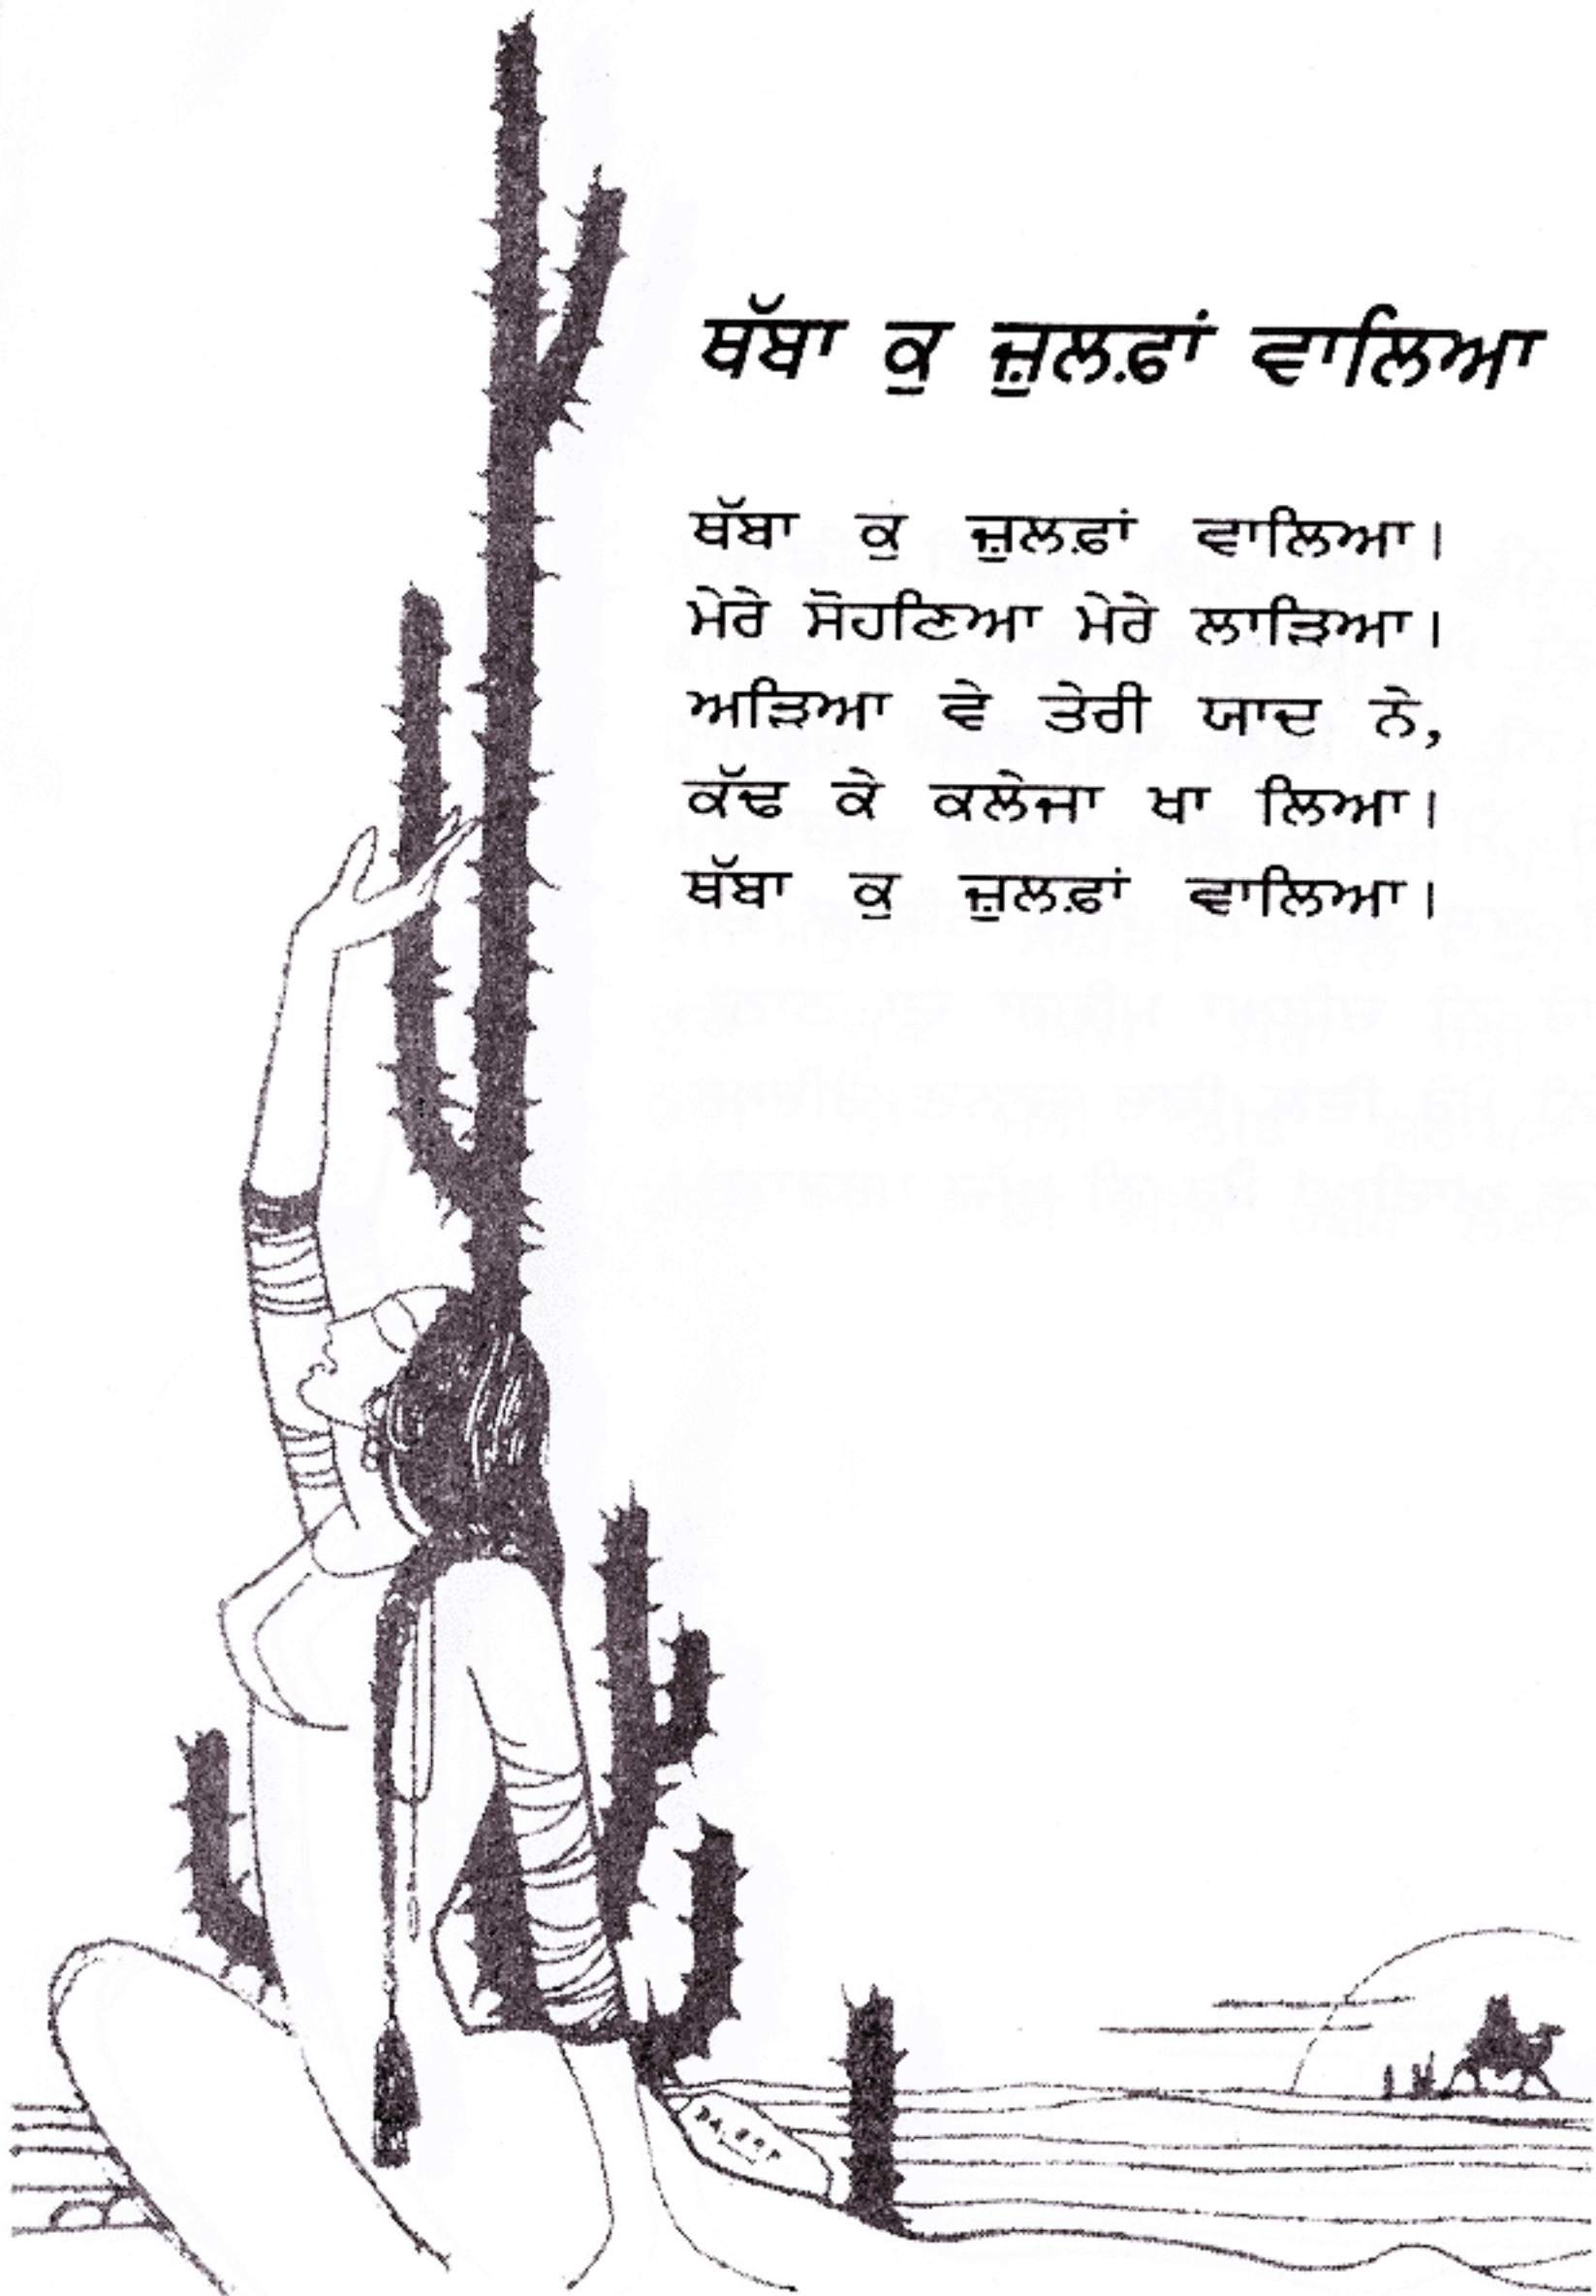 ਥੱਬਾ ਕੁ ਜ਼ੁਲਫ਼ਾਂ ਵਾਲਿਆ
ਥੱਬਾ ਕੁ ਜ਼ੁਲਫ਼ਾਂ ਵਾਲਿਆ।
ਮੇਰੇ ਸੋਹਣਿਆ ਮੇਰੇ ਲਾੜਿਆ।
ਅੜਿਆ ਵੇ ਤੇਰੀ ਯਾਦ ਨੇ,
ਕੱਢ ਕੇ ਕਲੇਜਾ ਖਾ ਲਿਆ।
ਥੱਬਾ ਕੁ ਜ਼ੁਲਫ਼ਾਂ ਵਾਲਿਆ।